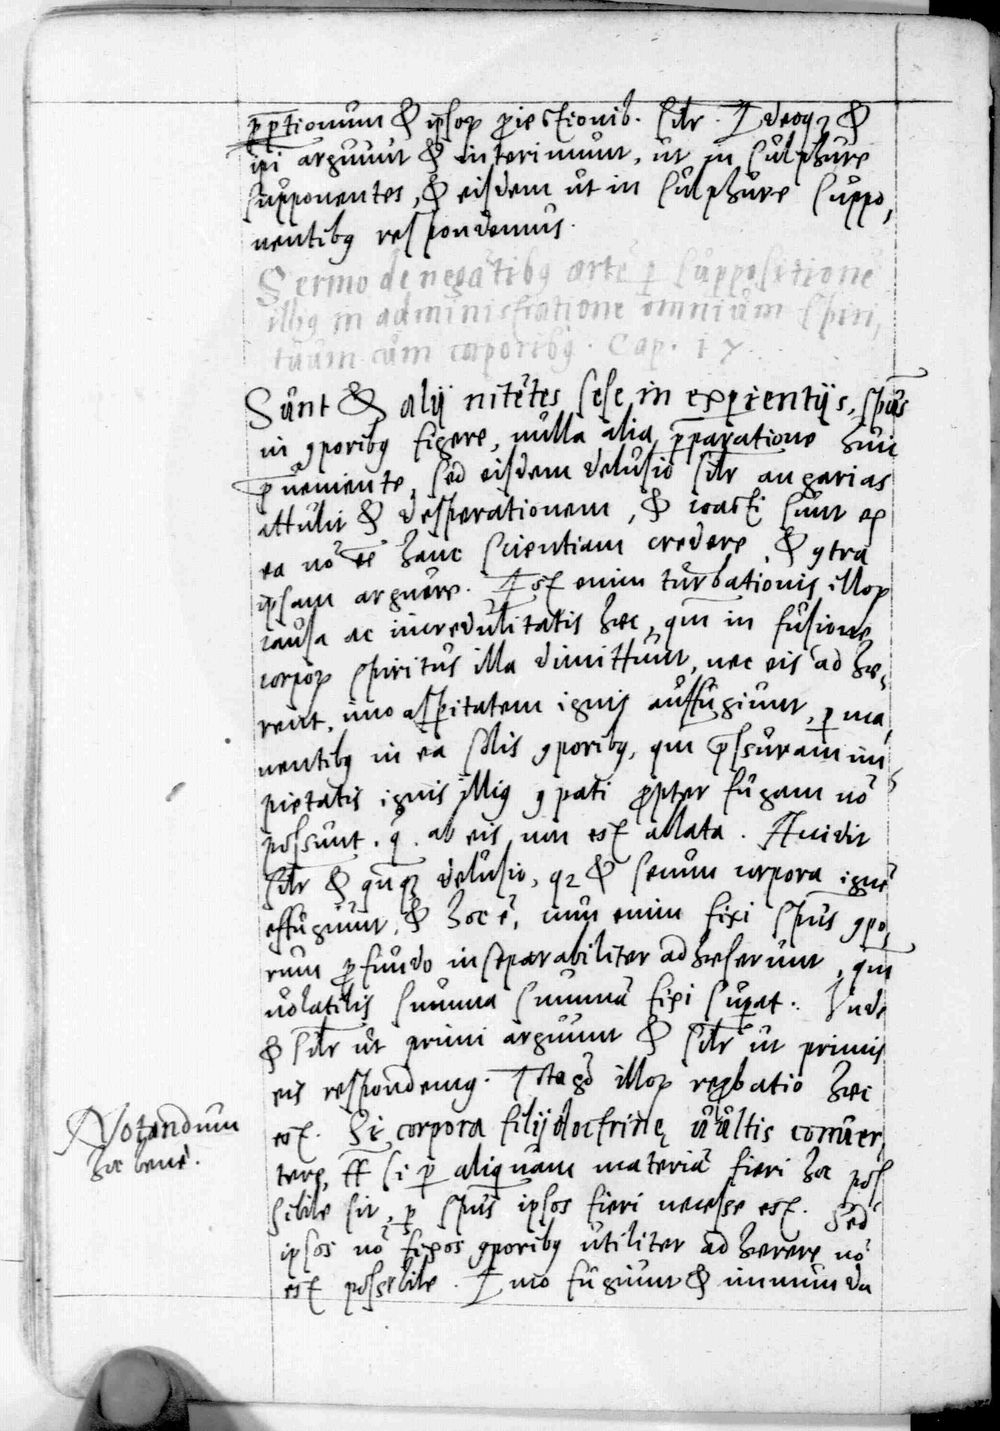 ꝑꝑtionum & ipsoꝝ ꝓiectionib. silr. Ideoqȝ &
ipi arguunt & interimunt, ut in sulphure
supponentes, & eisdem ut in sulphure suppo,
nentibꝰ respondemus.
Sermo de negātibꝰ artē ꝑ suppositionē
illiꝰ in administratione omnium spiri,
tuum cum corporibꝰ. Cap. 17.
Sunt & alij nitētes sese in experientijs, spūs
in ꝯporibꝰ figere, nulla alia p̄paratione huic
p̄ueniente, sed eisdem delusio silr angarias
attulit & desperationem, & coacti sunt ex
ea nō eē hanc scientiam credere, & ꝯtra
ipsam arguere. Est enim turbationis illoꝝ
causa ac incredulitatis hęc, qm̄ in fusione
corpoꝝ spiritus illa dimittunt, nec eis adhę,
rent, imo asꝑitatem ignis auffugiunt, ꝑma,
nentibꝰ in ea solis ꝯporibꝰ, qm̄ p̄ssuram im
pietatis ignis illiꝰ ꝯpati ꝓpter fugam nō
possunt. q̄. ab eis non est allata. Accidit
silr & qnqȝ delusio, qȝ & secum corpora ignē
effugiunt, & hoc ē, cum enim fixi spūs ꝯpo,
rum ꝓfundo inseparabiliter adhęserunt, qm̄
volatilis summa summā fixi suꝑat. Unde
& silr ut primi arguunt & silr ut primis
eis respondemꝰ. Itaqȝ illoꝝ reꝓbatio hęc
est. Si corpora filij doctrinę vultis conver,
tere, tc̄ si ꝑ aliquam materiā fieri hoc pos
sibile sit, ꝑ spūs ipsos fieri necesse est. Sed
ipsos nō fixos ꝯporibꝰ utiliter adhęrere nō
est possibile. Imo fugiunt & immunda
Notandum
hoc bene.